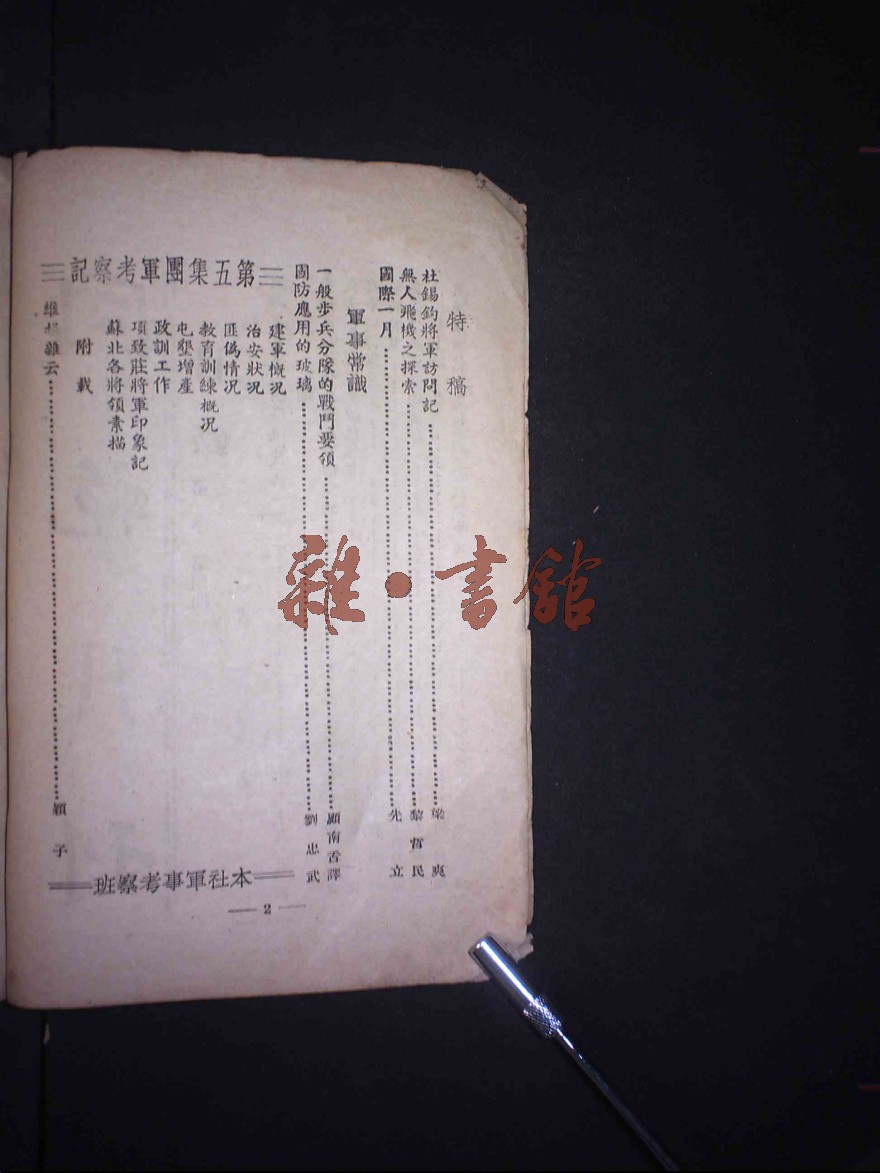 特稿
杜錫鈞將軍訪問記……梁爽
無人飛機之探索……黎哲民
國際一月……先立
軍事常識
一般步兵分隊的戰鬥要領……顧南香譯
國防應用的玻璃……劉忠武
第五集團軍考察記
建軍概況
治安狀況
匪偽情況
教育訓練概況
屯墾增產
政訓工作
項致莊將軍印象記
蘇北各將領素描
本社軍事考察班
附載
維揚雜云……穎子
2
雜·書館